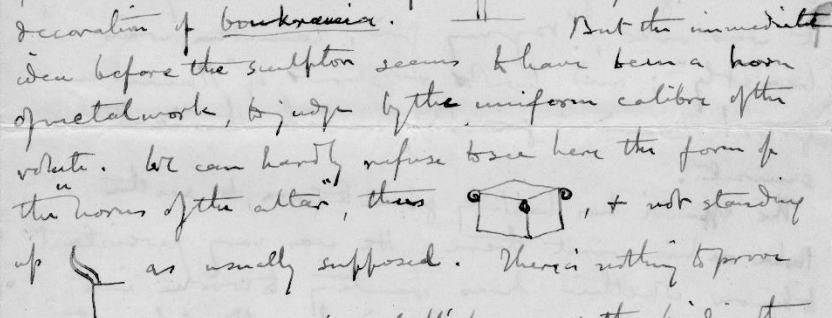 decoration of boukrania. But the immediate
idea before the sculptor seems to have been a horn
of metal work, to judge by the uniform calibre of the
volute. We can hardly refuse to see here the form of
the "horns of the altar", thus , & not standing
up as usually supposed. There is nothing to prove